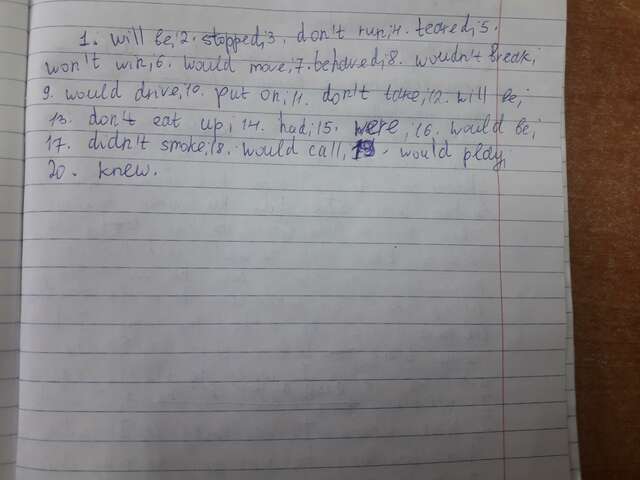 1. will be; 2. stopped; 3. don't run; 4. teared; 5.
won't win; 6. would move; 7. behaved; 8. woudn't break;
9. would drive; 10. put on; 11. don't take; 12. will be;
13. don't eat up; 14. had; 15. were; 16. would be;
17. didn't smoke; 18. would call; 19. would play;
20. knew.